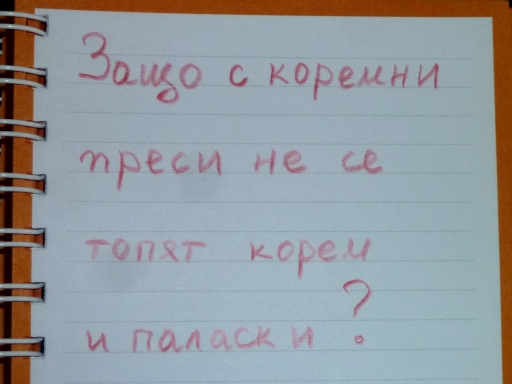 Защо с коремни
преси не се
топят корем
и паласки?